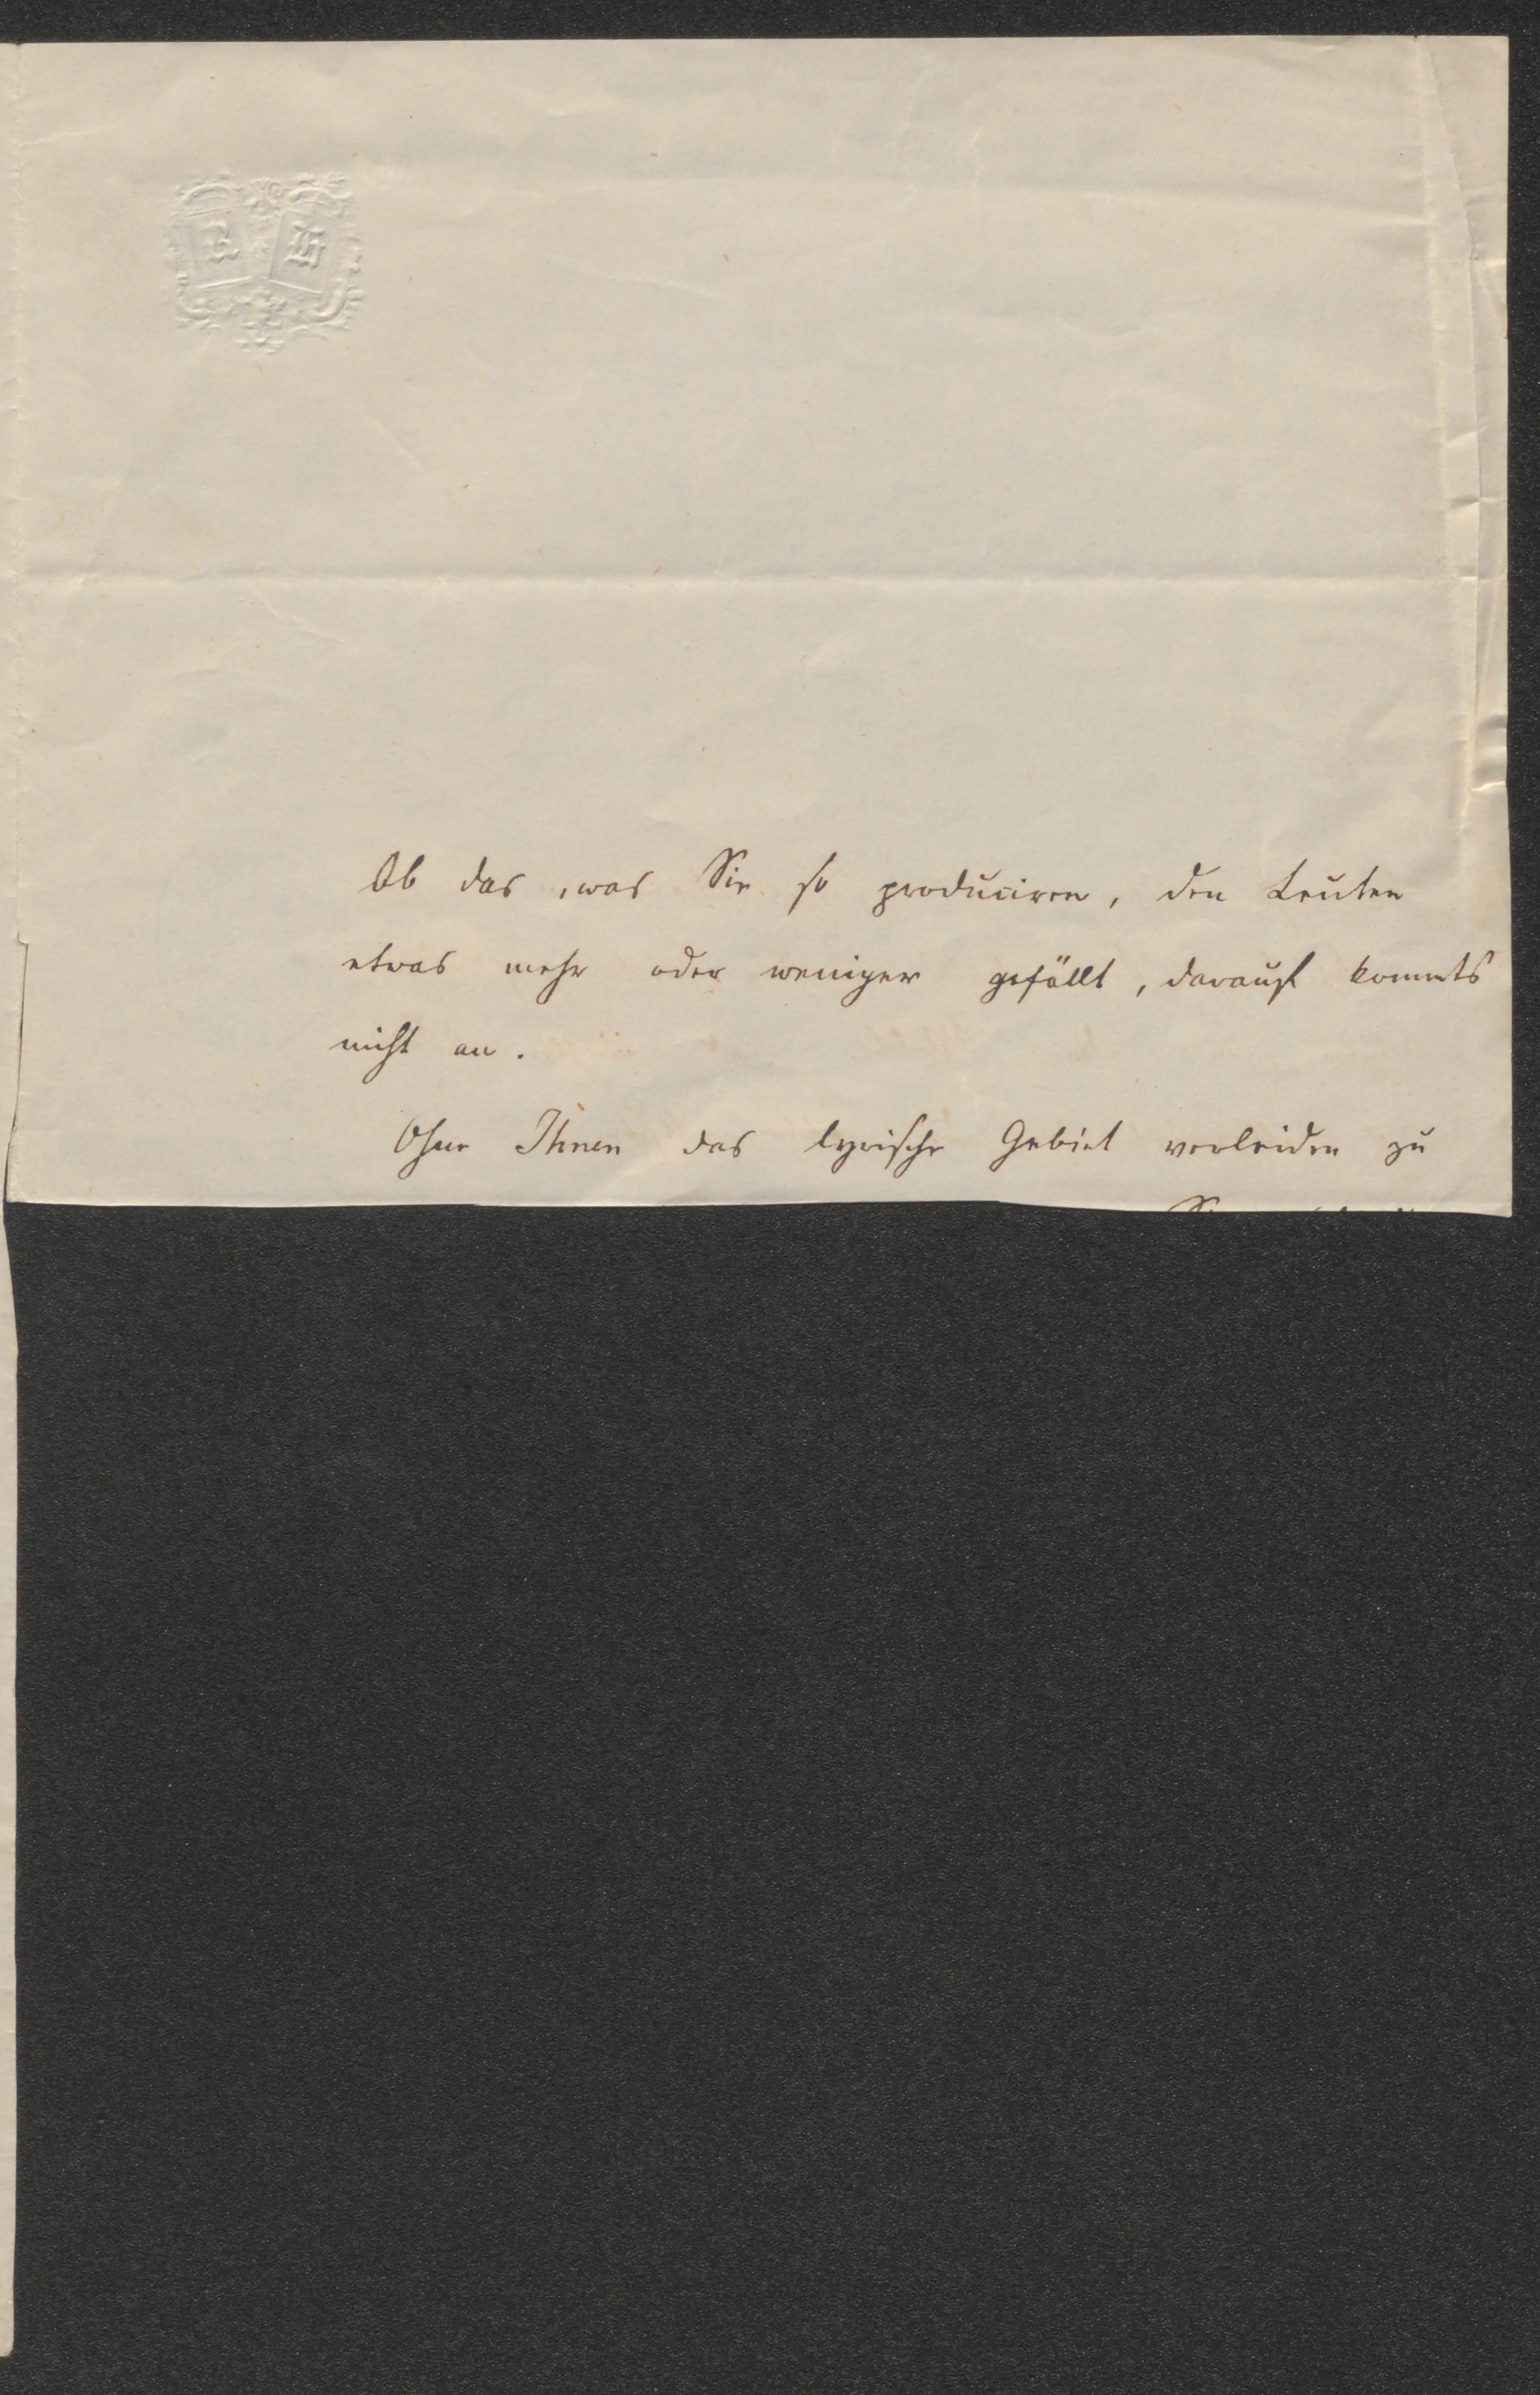 Ob das, was Sie so produciren, den Leuten
etwas mehr oder weniger gefällt, darauf kommts
nicht an.
Ohne Ihnen das lyrische Gebiet verleiden zu